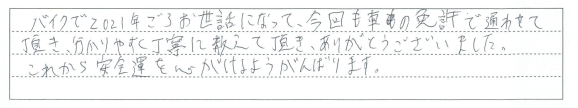 バイクで2021年ごろお世話になって、今回も車の免許で通わせて
頂き、分かりやすく丁寧に教えて頂き、ありがとうございました。
これから安全運を心がけるようがんばります。